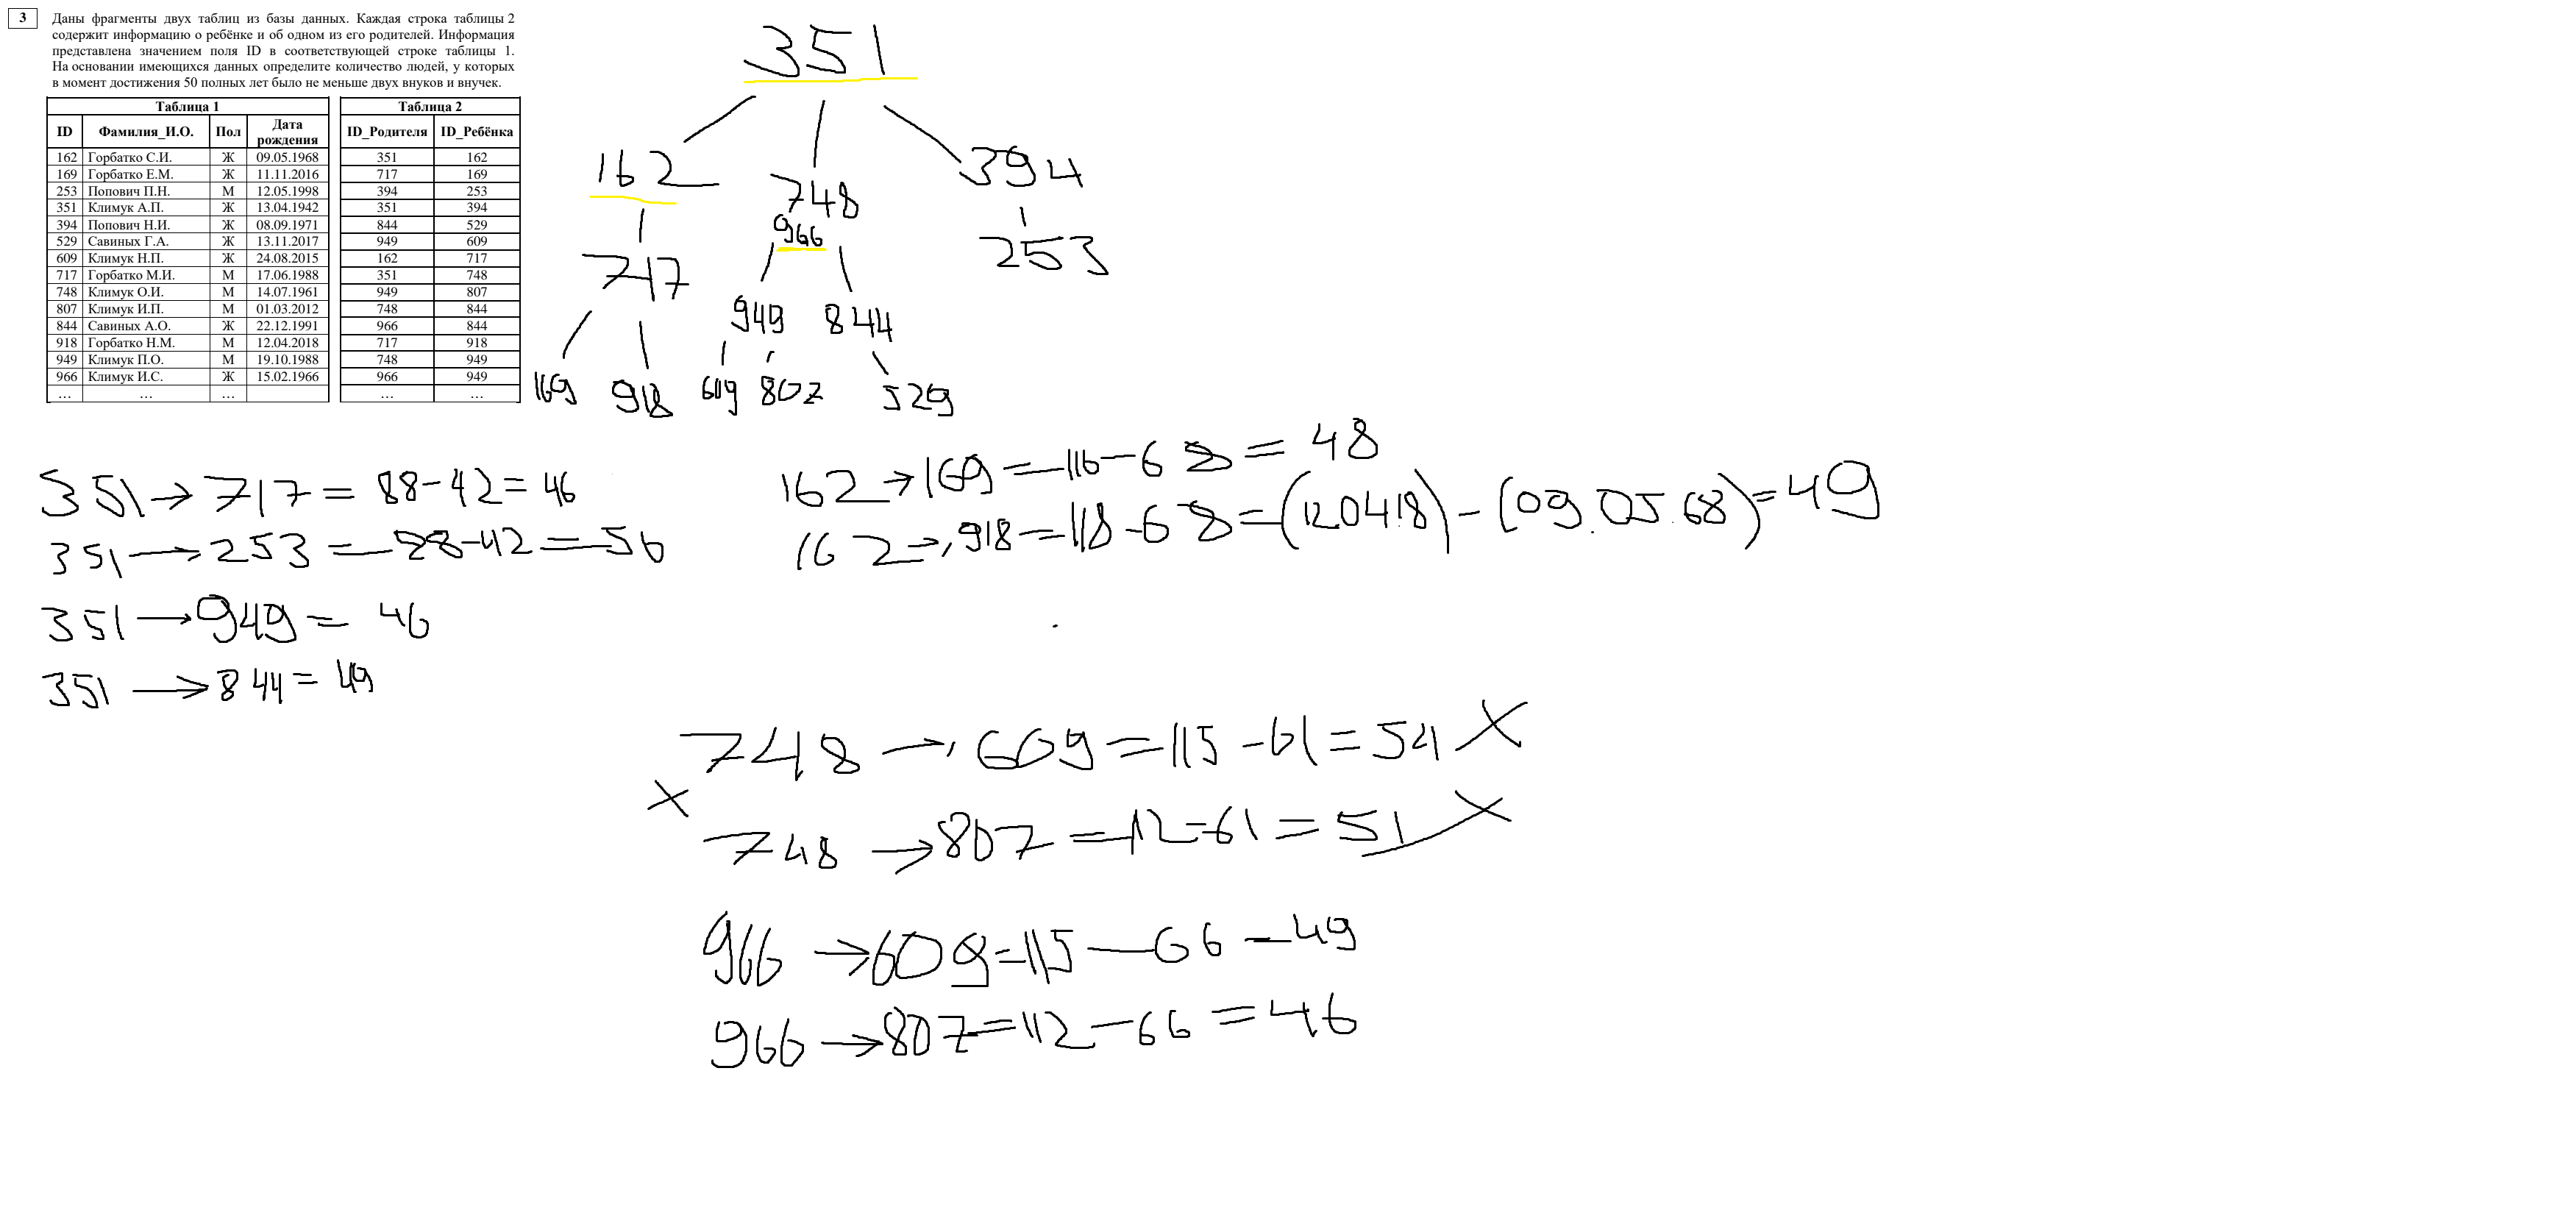 3
Даны фрагменты двух таблиц из базы данных. Каждая строка таблицы 2
содержит информацию о ребёнке и об одном из его родителей. Информация
представлена значением поля ID в соответствующей строке таблицы 1.
На основании имеющихся данных определите количество людей, у которых
в момент достижения 50 полных лет было не меньше двух внуков и внучек.
Таблица 1
ID Фамилия_И.О. Пол Дата рождения
162 Горбатко С.И. Ж 09.05.1968
169 Горбатко Е.М. Ж 11.11.2016
253 Попович П.Н. М 12.05.1998
351 Климук А.П. Ж 13.04.1942
394 Попович Н.И. Ж 08.09.1971
529 Савиных Г.А. Ж 13.11.2017
609 Климук Н.П. Ж 24.08.2015
717 Горбатко М.И. М 17.06.1988
748 Климук О.И. М 14.07.1961
807 Климук И.П. М 01.03.2012
844 Савиных А.О. Ж 22.12.1991
918 Горбатко Н.М. М 12.04.2018
949 Климук П.О. М 19.10.1988
966 Климук И.С. Ж 15.02.1966
… … …
Таблица 2
ID_Родителя ID_Ребёнка
351 162
717 169
394 253
351 394
844 529
949 609
162 717
351 748
949 807
748 844
966 844
717 918
748 949
966 949
… …
351
162 748 394
966
717 949 844 253
169 918 609 807 529
351 → 717 = 88 - 42 = 46
351 → 253 = 98 - 42 = 56
351 → 949 = 46
351 → 844 = 49
162 → 169 = 116 - 68 = 48
162 → 918 = 118 - 68 = (12.04.18) - (09.05.68) = 49
748 → 609 = 115 - 61 = 54 X
X
748 → 807 = 112 - 61 = 51 X
966 → 609 = 115 - 66 - 49
966 → 807 = 112 - 66 = 46